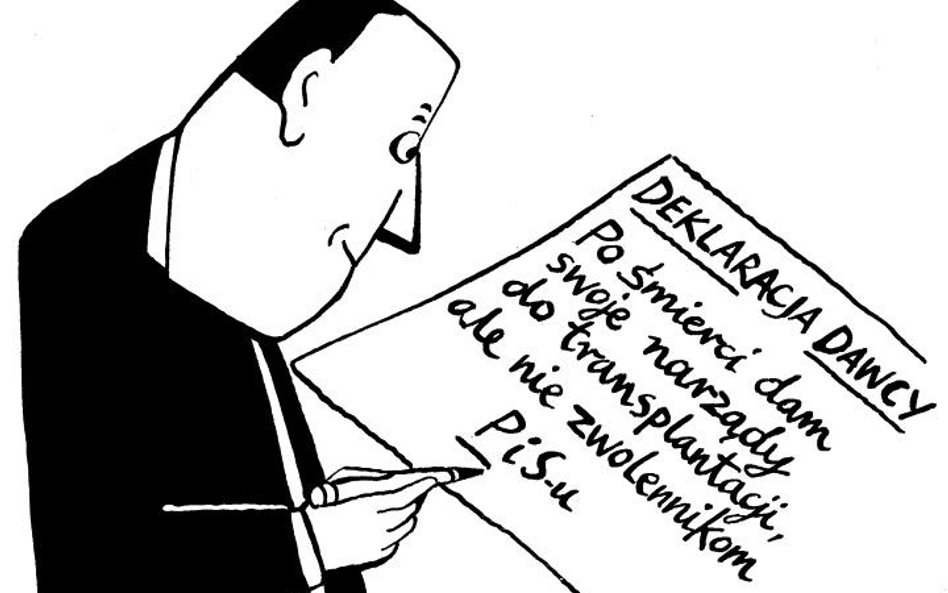 DEKLARACJA DAWCY
Po śmierci dam
swoje narządy
do transplantacji,
ale nie zwolennikom
PiS-u